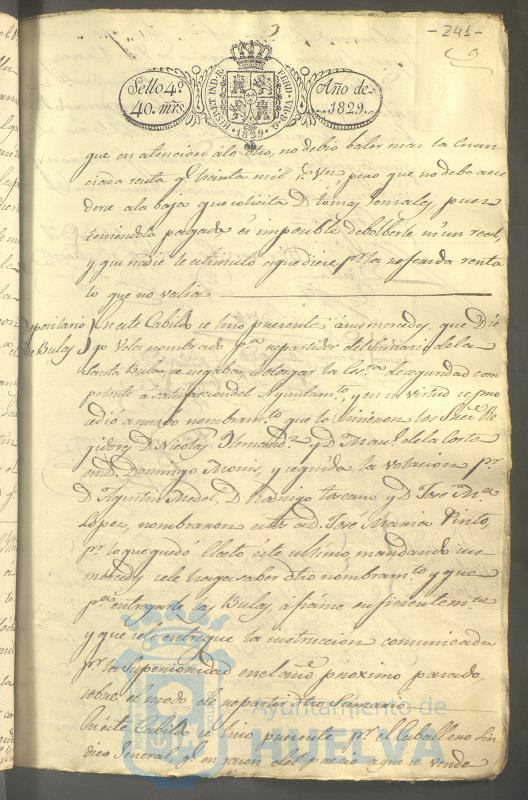 - 241 -
Sello 4.º
40. mrs.
HISPAN. IND. R.
1829
Año de
1829.
que en atencion á lo dho, no debio baler mas la enun-
ciada renta q.e treinta mil r.s v.on pero que no debe acce-
derse ala baja que solicita D. Tomas Gonzalez, pues
teniendola pagada es imposible debolberle ni un real,
y que nadie le estimuló aque diese p.r la referida renta
lo que no valia
Depositario
de Bulas
En este Cabildo se hizo presente a sus mercedes, que Die-
go Velez nombrado p.a repartidor del Sumario de la
Santa Bula, se negaba, a otorgar la Es.ra de seguridad com-
petente a satisfaccion del Ayuntam.to, y en su virtud se pro-
cedió a nuebo nombram.to que lo hicieron los Señ.s Re-
gidores D. Nicolas Hernand.z y D. Man.l de la Corte
en D. Domingo Monis, y seguida la votacion p.r
D. Agustin Medel, D. Rodrigo Toscano y D. Jose M.a
Lopez, nombraron estos a D. Jose Maria Pinto,
p.r lo que quedó Electo este ultimo, mandando sus
mercedes se le haga saber dho nombram.to y que
p.a entregarle las Bulas, afiánce suficientem.te
y que se le entregue la instruccion comunicada
p.r la Superioridad en el año proximo pasado,
sobre el modo de repartir dho Sumario.
En este Cabildo se hizo presente p.r el Caballero Sin-
dico General q.e en razon del precio a que se vende
Ayuntamiento de
HUELVA